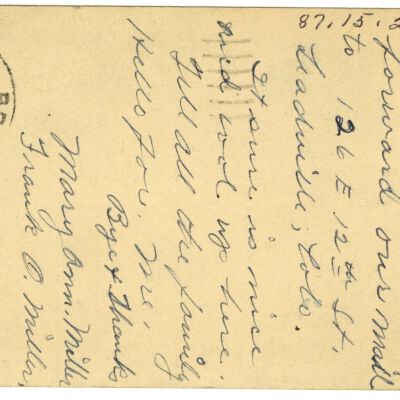 87.15.2
forward our mail
to 126 E 12th St,
Leadville, Colo.
It sure is nice
and cool up here.
Tell all the family
Hello for me,
Bye & Thanks
Mary Ann Miller
Frank O. Miller,